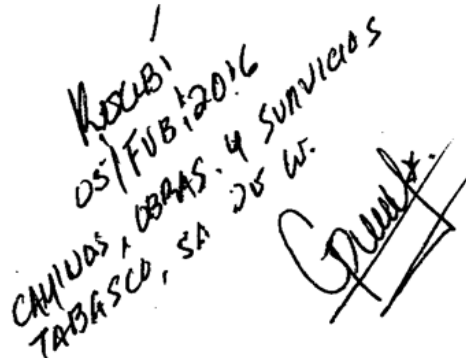 Recibí
05/FEB/2016
CAMINOS, OBRAS. Y SERVICIOS
TABASCO, SA DE CV.